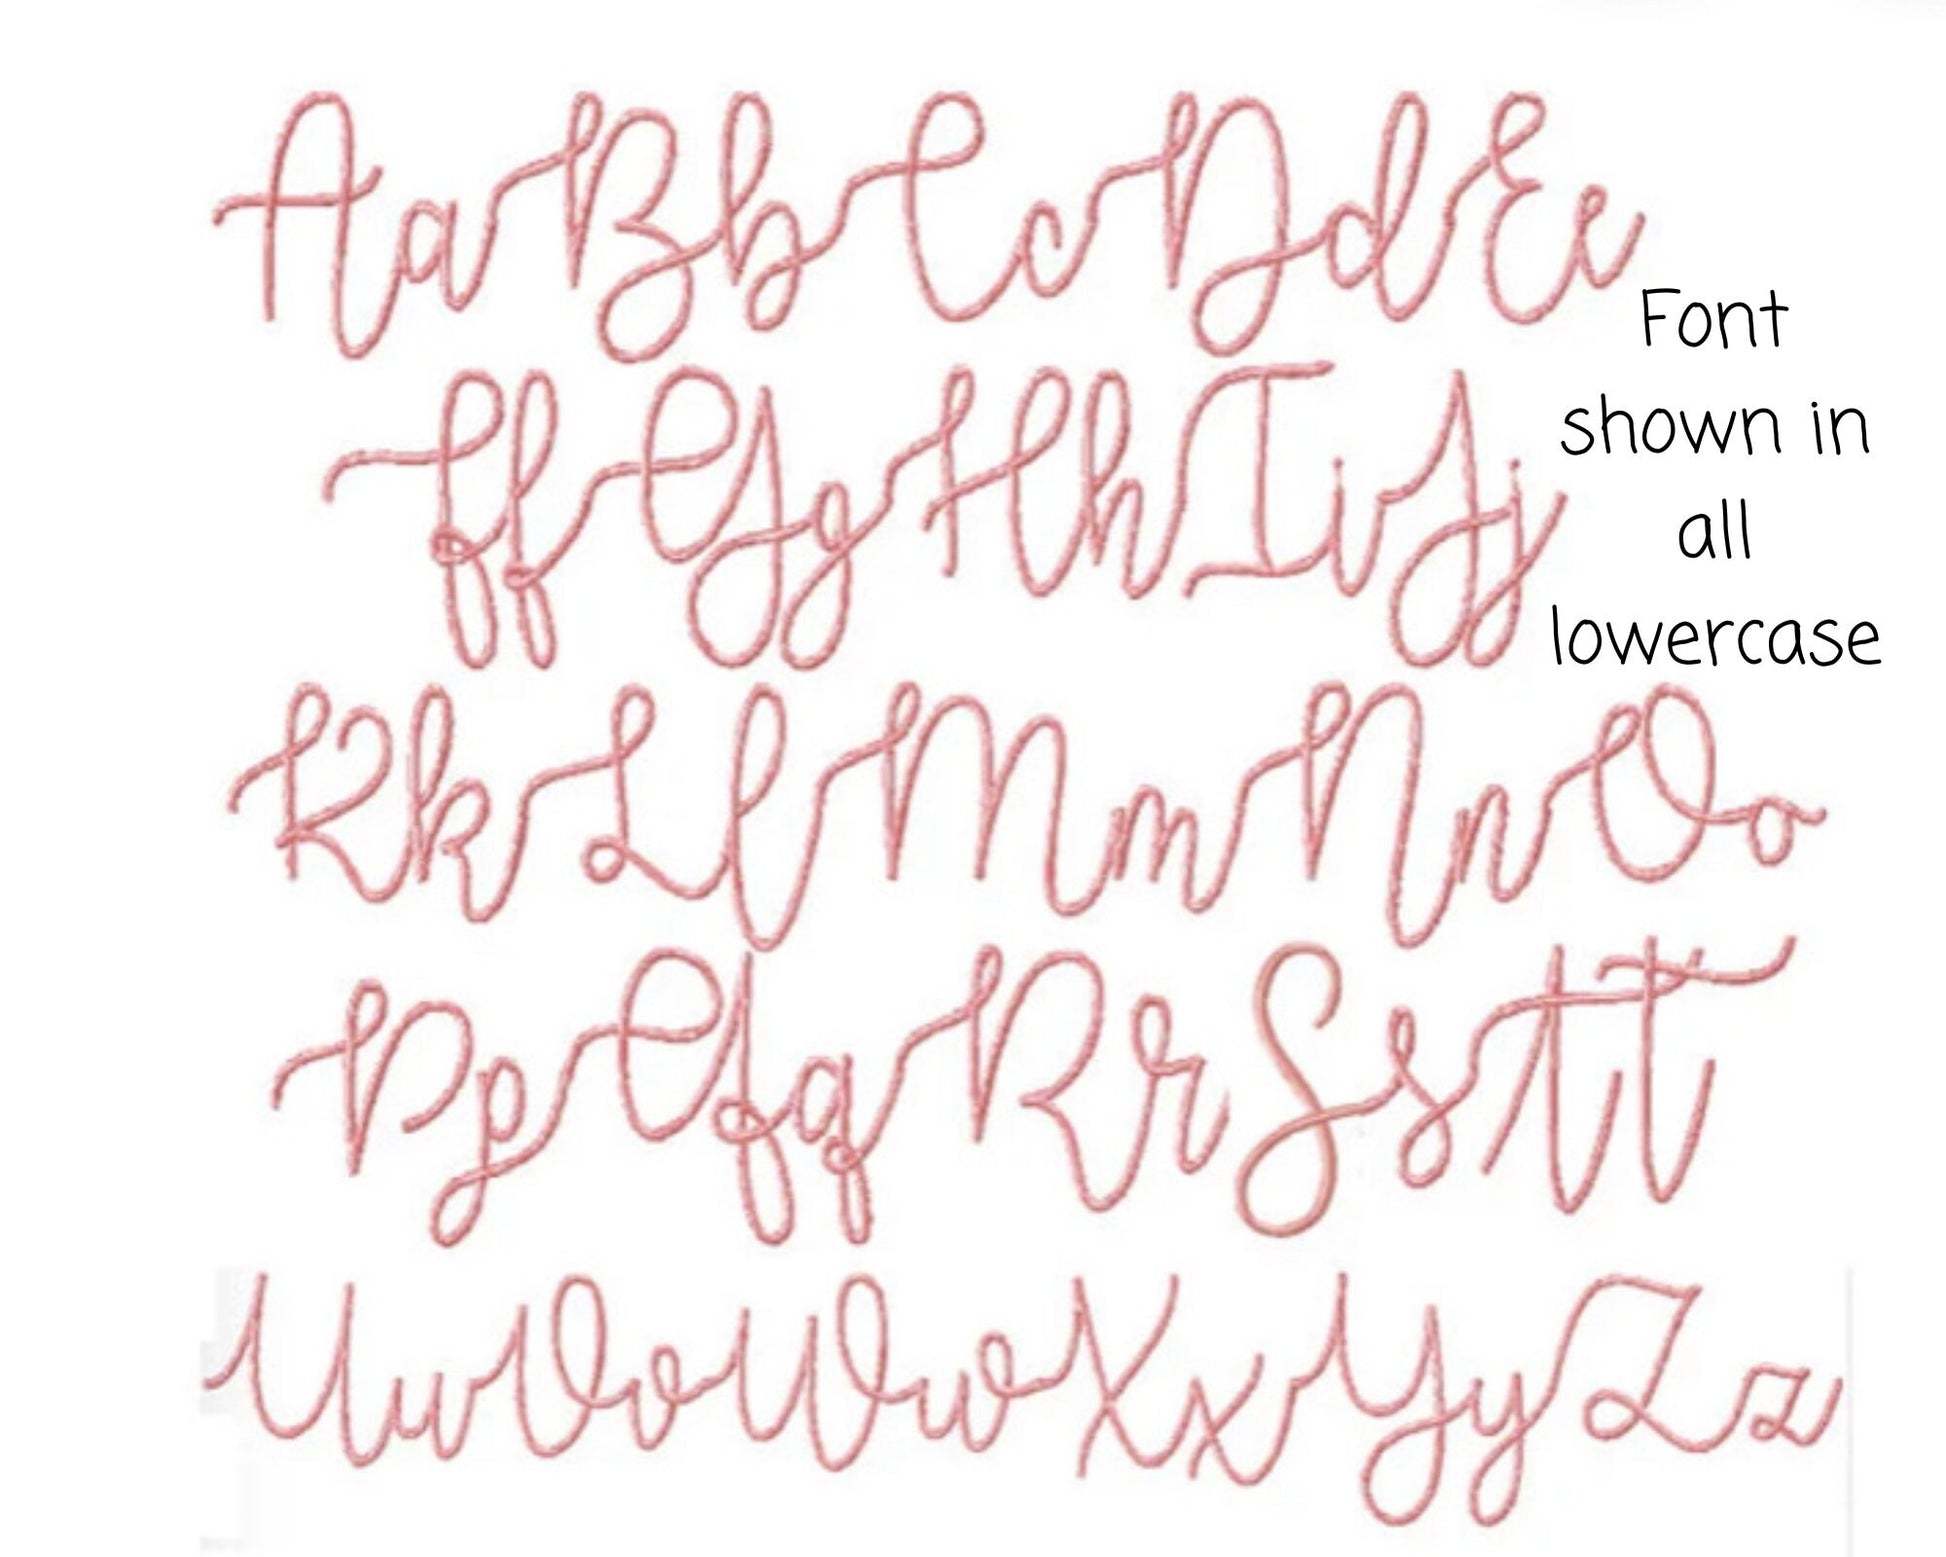 AaBbCcDdEe
FfGgHhIiJj
KkLlMmNnOo
PpQqRrSsTt
UuVvWwXxYyZz
Font
shown in
all
lowercase